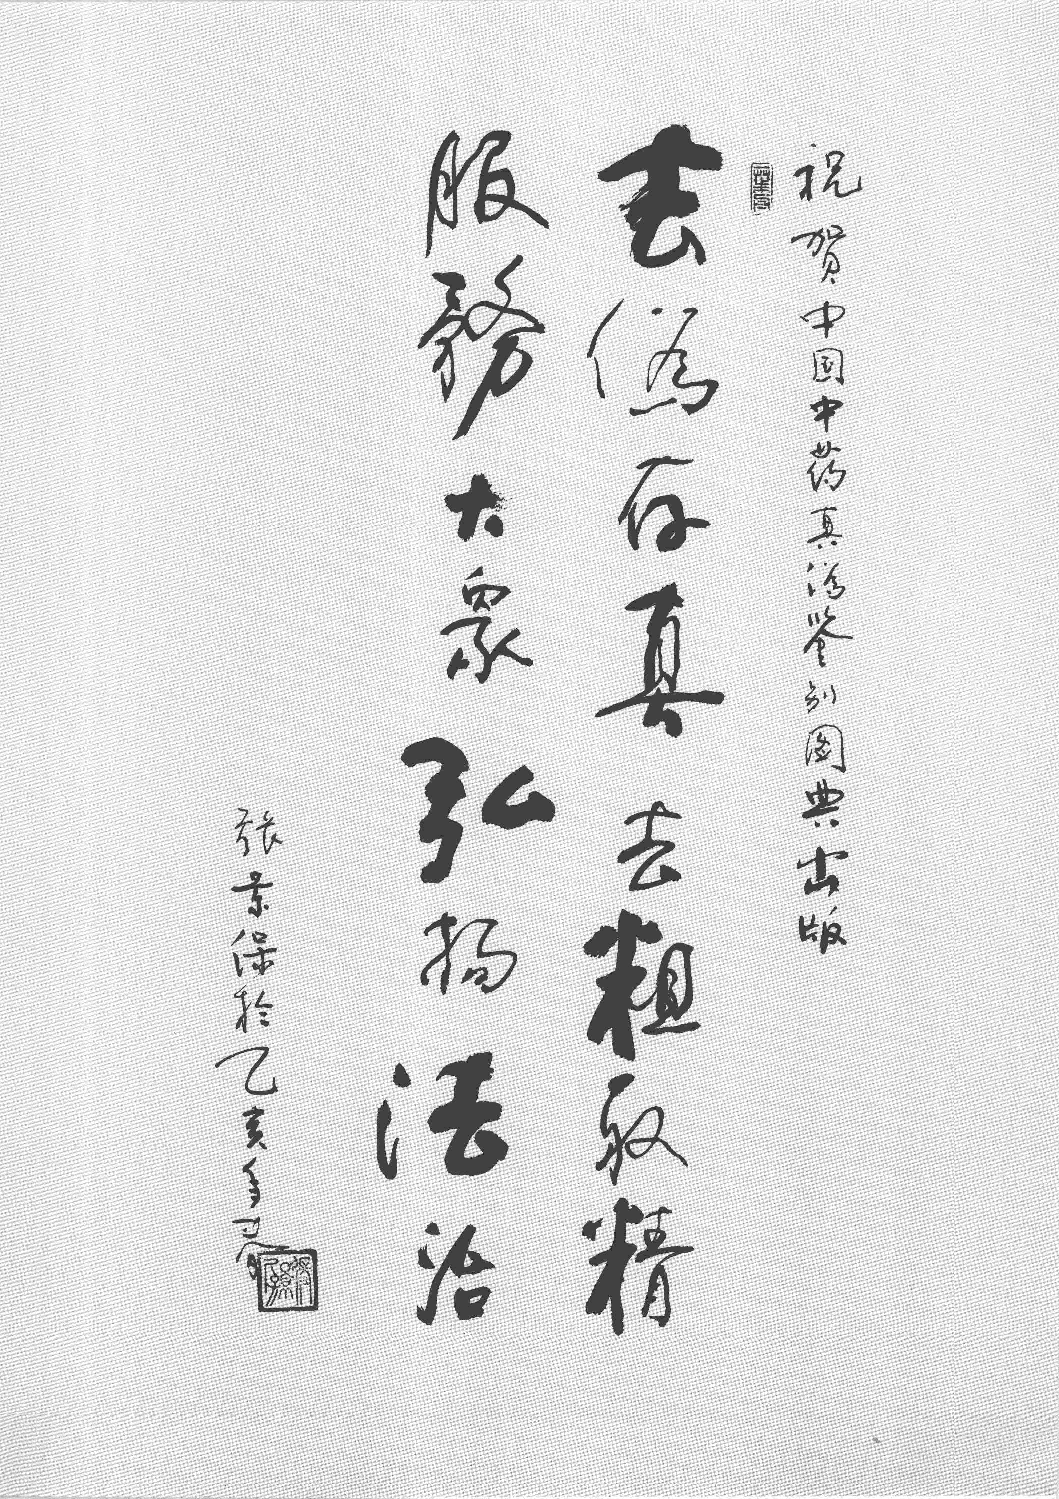 祝贺中国中药真伪鉴别图典出版
去伪存真去粗取精
服务大众弘扬法治
张景保於乙亥年